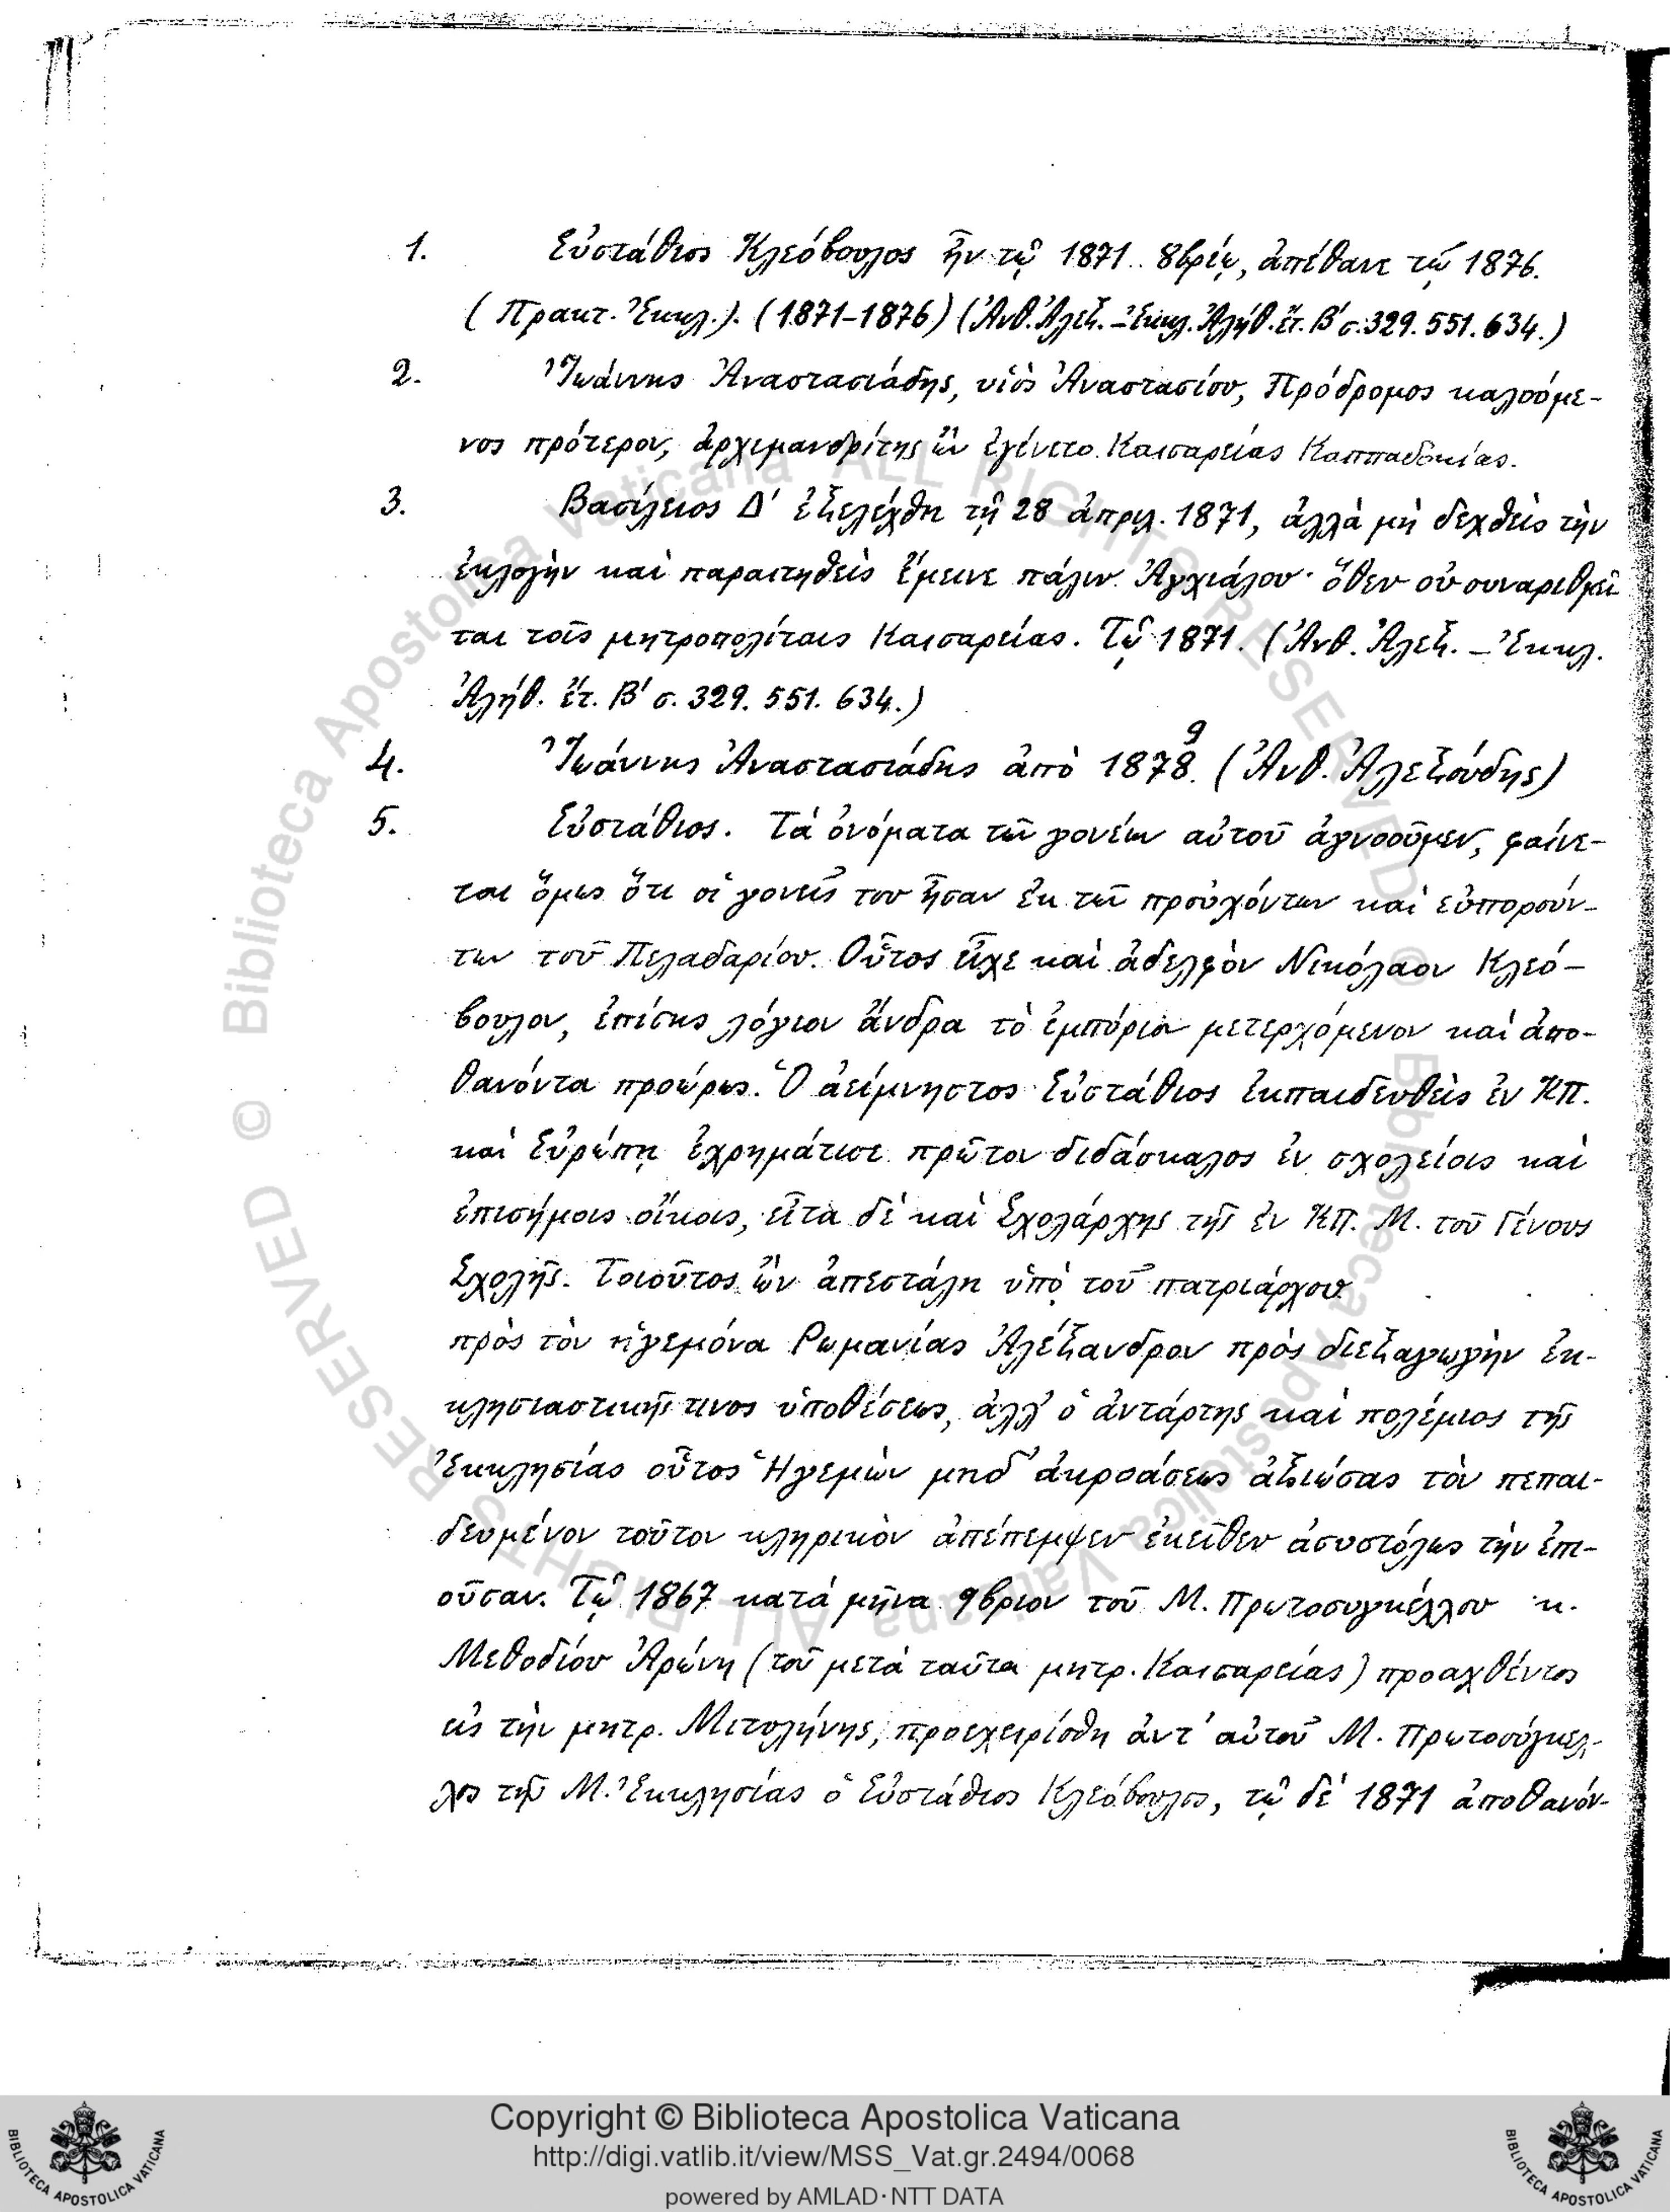 1. Εὐστάθιος Κλεόβουλος ἦν τῷ 1871. 8βρίῳ, ἀπέθανε τῷ 1876.
(Πρακτ. Ἐκκλ.). (1871-1876) (Ἀνθ. Ἀλεξ. – Ἐκκλ. Ἀλήθ. ἔτ. Β' σ. 329. 551. 634.)
2. Ἰωάννης Ἀναστασιάδης, υἱὸς Ἀναστασίου, Πρόδρομος καλούμε-
νος πρότερον, ἀρχιμανδρίτης ὢν ἐγένετο Καισαρείας Καππαδοκίας.
3. Βασίλειος Δ' ἐξελέχθη τῇ 28 ἀπριλ. 1871, ἀλλὰ μὴ δεχθεὶς τὴν
ἐκλογὴν καὶ παραιτηθεὶς ἔμεινε πάλιν Ἀγχιάλου· ὅθεν οὐ συναριθμεῖ
ται τοῖς μητροπολίταις Καισαρείας. Τῷ 1871. (Ἀνθ. Ἀλεξ. – Ἐκκλ.
Ἀλήθ. ἔτ. Β' σ. 329. 551. 634.)
9
4. Ἰωάννης Ἀναστασιάδης ἀπὸ 1878. (Ἀνθ. Ἀλεξούδης)
5. Εὐστάθιος. Τὰ ὀνόματα τῶν γονέων αὐτοῦ ἀγνοοῦμεν, φαίνε-
ται ὅμως ὅτι οἱ γονεῖς του ἦσαν ἐκ τῶν προὐχόντων καὶ εὐπορούν-
των τοῦ Πελαδαρίου. Οὗτος εἶχε καὶ ἀδελφὸν Νικόλαον Κλεό-
βουλον, ἐπίσης λόγιον ἄνδρα τὸ ἐμπόριον μετερχόμενον καὶ ἀπο-
θανόντα προώρως. Ὁ ἀείμνηστος Εὐστάθιος ἐκπαιδευθεὶς ἐν ΚΠ.
καὶ Εὐρώπῃ ἐχρημάτισε πρῶτον διδάσκαλος ἐν σχολείοις καὶ
ἐπισήμοις οἴκοις, εἶτα δὲ καὶ Σχολάρχης τῆς ἐν ΚΠ. Μ. τοῦ Γένους
Σχολῆς. Τοιοῦτος ὢν ἀπεστάλη ὑπὸ τοῦ πατριάρχου
πρὸς τὸν ἡγεμόνα Ρωμανίας Ἀλέξανδρον πρὸς διεξαγωγὴν ἐκ-
κλησιαστικῆς τινος ὑποθέσεως, ἀλλ' ὁ ἀντάρτης καὶ πολέμιος τῆς
Ἐκκλησίας οὗτος Ἡγεμὼν μηδ' ἀκροάσεως ἀξιώσας τὸν πεπαι-
δευμένον τοῦτον κληρικὸν ἀπέπεμψεν ἐκεῖθεν ἀσυστόλως τὴν ἐπι-
οῦσαν. Τῷ 1867 κατὰ μῆνα 9βριον τοῦ Μ. Πρωτοσυγκέλλου κ.
Μεθοδίου Ἀρώνη (τοῦ μετὰ ταῦτα μητρ. Καισαρείας) προαχθέντος
εἰς τὴν μητρ. Μιτυλήνης, προεχειρίσθη ἀντ' αὐτοῦ Μ. Πρωτοσύγκελ-
λος τῆς Μ. Ἐκκλησίας ὁ Εὐστάθιος Κλεόβουλος, τῷ δὲ 1871 ἀποθανόν-
Copyright © Biblioteca Apostolica Vaticana
http://digi.vatlib.it/view/MSS_Vat.gr.2494/0068
powered by AMLAD·NTT DATA